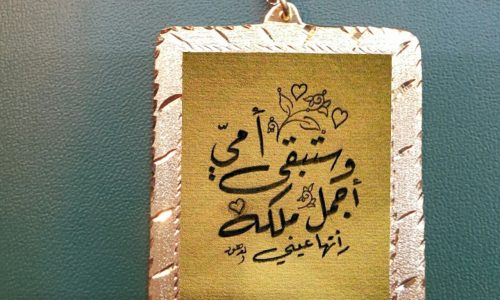 وستبقى أميّ
أجمل ملكة
رأتها عيني